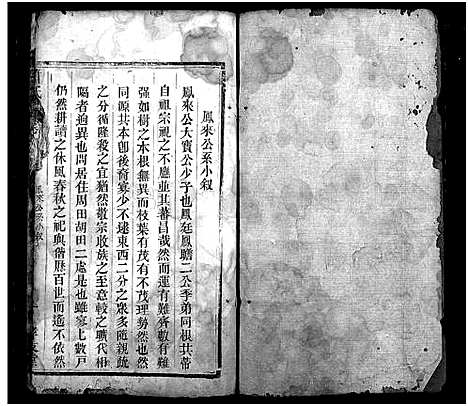 鳳來公系小叙
鳳來公大賓公少子也鳳廷鳳瞻二公季弟同根共蒂
自祖宗視之不應並其蕃昌哉然而運有難齊數有難
强如樹之本根無異而枝葉有茂有不茂理勢然也然
同源共本卽後裔寥少不逮東西二分之衆多隨親疏
之分循隆殺之宜猶然敬宗收族之至意較之曠代相
陽者逈異也問居住周田胡田二處是也雖家七數戶
仍然耕讀之休風春秋之祀典偕歷百世而遙不依然
鳳來公系小叙